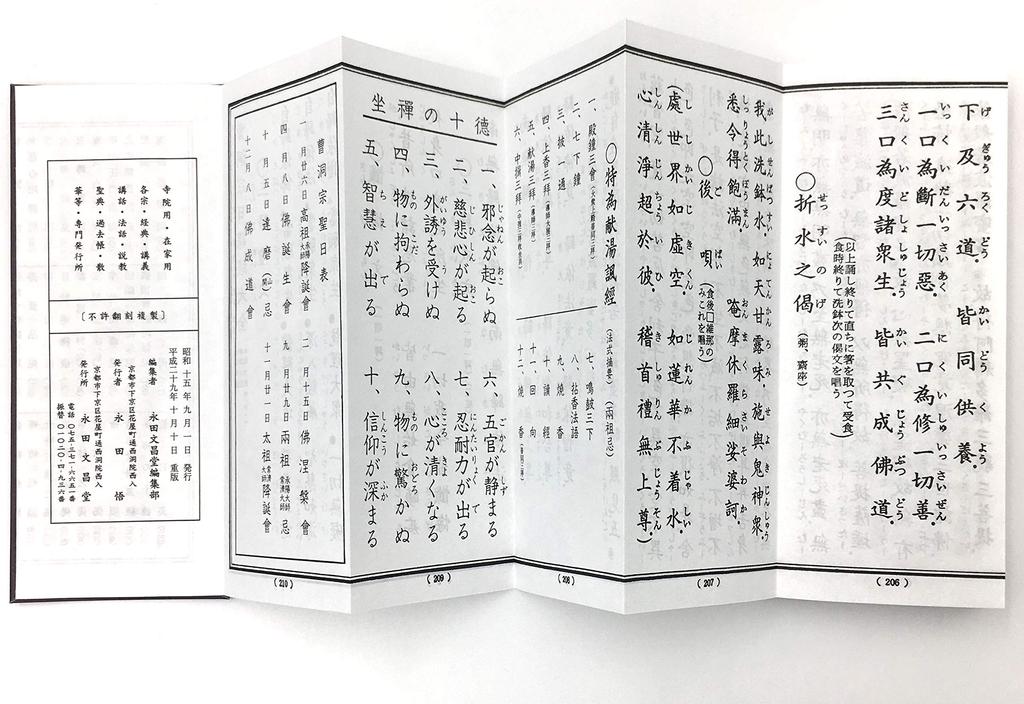 下及六道。皆同供養。
一口為斷一切惡。二口為修一切善。
三口為度諸衆生。皆共成佛道。
(以上誦し終りて直ちに箸を取つて受食
食時終りて洗鉢次の偈文を唱う)
〇折水之偈(粥、齋座)
(206)
我此洗鉢水。如天甘露味。施與鬼神衆。
悉令得飽滿。唵摩休羅細娑婆訶。
〇後唄(食後□維那の
みこれを唱う)
(處世界如虚空。如蓮華不着水。
心清淨超於彼。稽首禮無上尊。)
(207)
〇特為献湯諷經(法式摘要)(兩祖忌)
一、殿鐘三會
二、七下鐘
三、拔一通
四、上香三拜
五、献湯三拜
六、中揖三拜
七、鳴鼓三下
八、拈香法語
九、燒香
十、讀經
十一、回向
十二、燒香
(208)
坐禪の十德
一、邪念が起らぬ
二、慈悲心が起る
三、外誘を受けぬ
四、物に拘わらぬ
五、智慧が出る
六、五官が静まる
七、忍耐力が出る
八、心が清くなる
九、物に驚かぬ
十、信仰が深まる
(209)
曹洞宗聖日表
一月廿六日高祖永陽大師降誕會 二月十五日佛涅槃會
四月八日佛誕生會 九月廿九日兩祖永陽大師常濟大師忌
十月五日達磨忌 十一月廿一日太祖常濟大師降誕會
十二月八日佛成道會
(210)
寺院用・在家用
各宗・經典・講義
講話・法話・説教
聖典・過去帳・散
華等・專門発行所
〔不許翻刻複製〕
昭和十五年九月一日発行
平成二十九年十月十日重版
編集者 永田文昌堂編集部
京都市下京区花屋町通西洞院西入
発行者 永田悟
京都市下京区花屋町通西洞院西入
発行所 永田文昌堂
電話〇七五・三七一・六六五一番
振替〇一〇二〇・四・九三六番